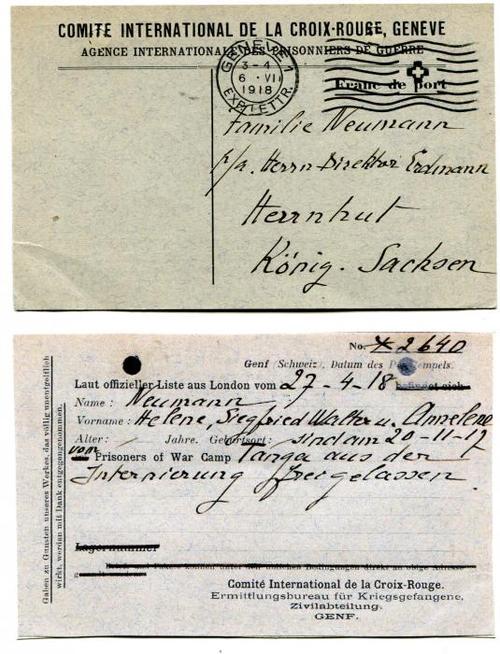 COMITÉ INTERNATIONAL DE LA CROIX-ROUGE, GENÈVE
AGENCE INTERNATIONALE DES PRISONNIERS DE GUERRE
GENÈVE 1
3-4
6 · VII
1918
EXP. LETTR.
Franc de port
Familie Neumann
p/a. Herrn Direktor Erdmann
Herrnhut
König. Sachsen
No. 2640
Genf (Schweiz), Datum des Poststempels.
Laut offizieller Liste aus London vom 27-4-18 befindet sich
Name: Neumann
Vorname: Helene, Siegfried Walter u. Annelene
Alter: Jahre. Geburtsort: sind am 20-11-17
von Prisoners of War Camp Tanga aus der
Internierung freigelassen.
Lagernummer
Comité International de la Croix-Rouge.
Ermittlungsbureau für Kriegsgefangene,
Zivilabteilung.
GENF.
Gaben zu Gunsten unseres Werkes, das völlig unentgeltlich
wirkt, werden mit Dank entgegengenommen.